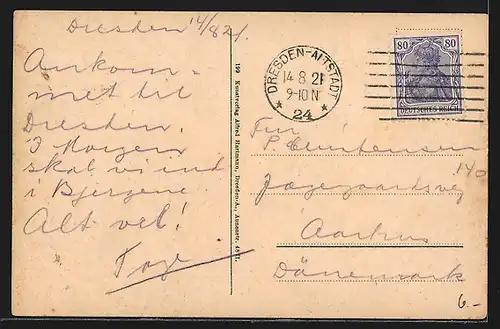 Dresden 14/8 21.
Ankom-
met til
Dresden.
I Morgen
skal vi ind
i Bjergene
Alt vel!
Tage
199 Kunstverlag Alfred Hartmann, Dresden-A., Annenstr.
DRESDEN-ALTSTADT
14.8.21
9-10 N
* 24 *
80 80
DEUTSCHES REICH
P. Christensen
140
Jægergaardsvej
Aarhus
Dänemark
6.-